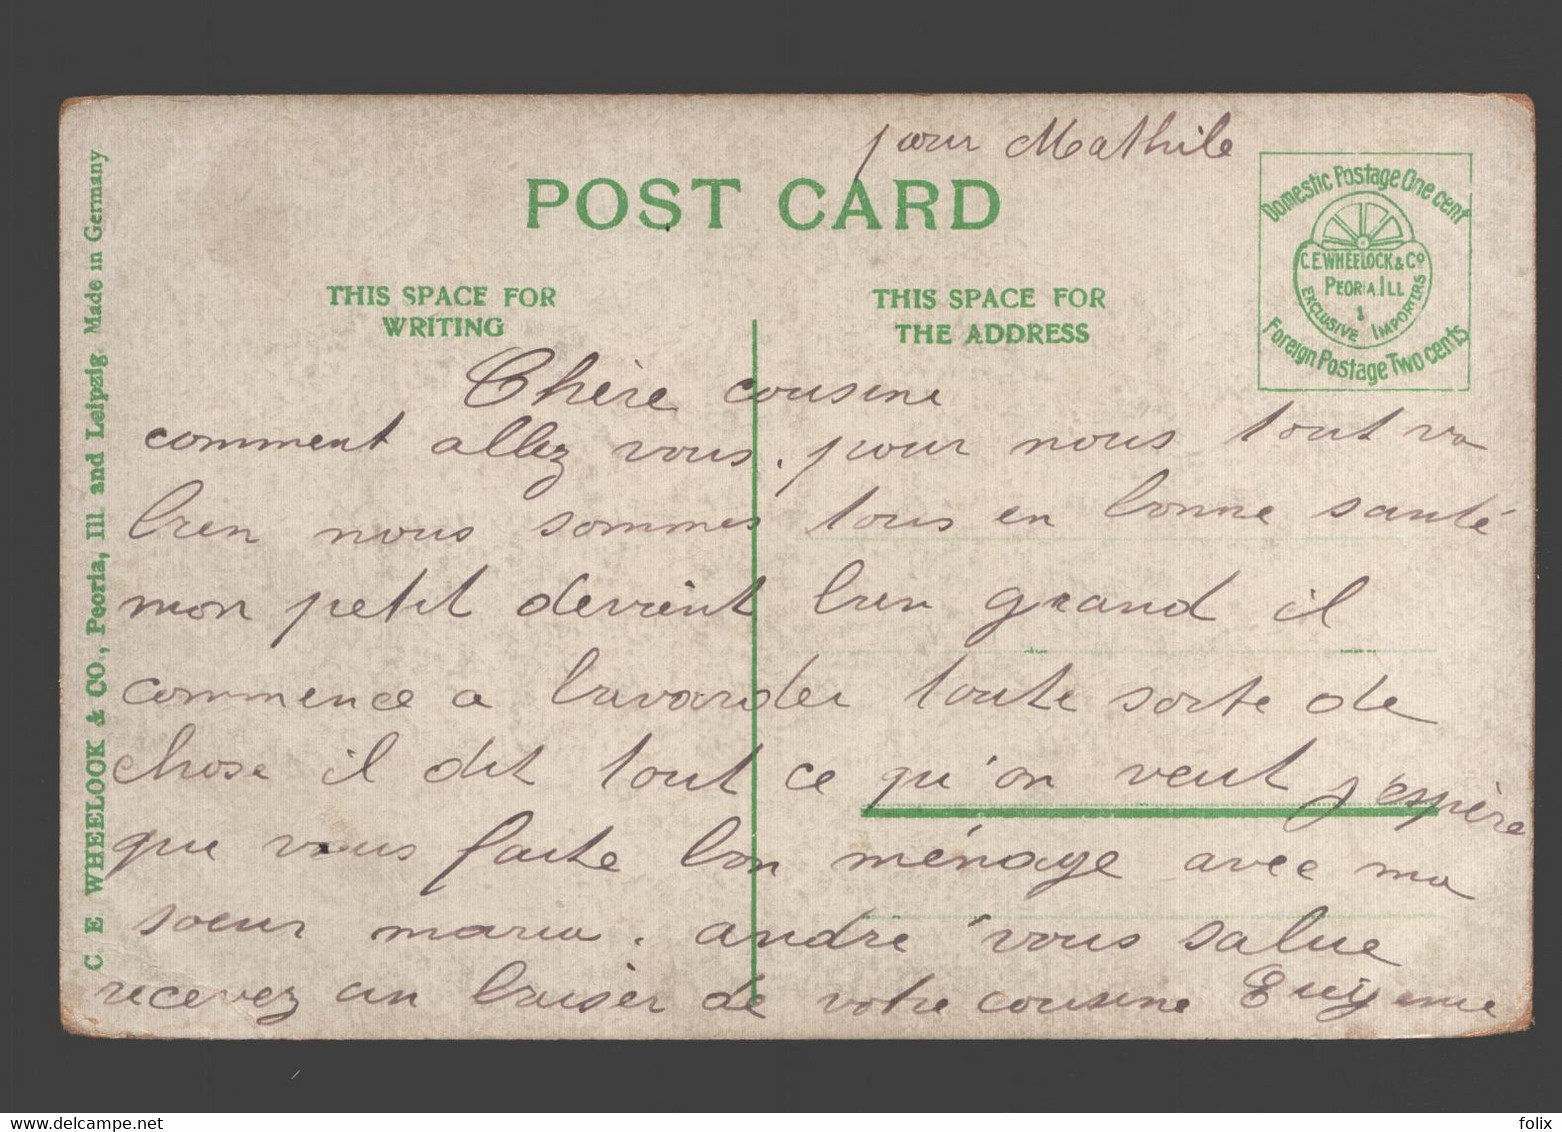 pour Mathile
POST CARD
Domestic Postage One cent
C.E. WHEELOCK & Co
PEORIA ILL
1
EXCLUSIVE IMPORTERS
Foreign Postage Two cents
THIS SPACE FOR
WRITING
THIS SPACE FOR
THE ADDRESS
C E WHEELOCK & CO., Peoria, Ill and Leipzig. Made in Germany
Chère cousine
comment allez vous. pour nous tout va
bien nous sommes tous en bonne santé
mon petit devient bien grand il
commence a bavarder toute sorte de
chose il dit tout ce qu'on veut j'espère
que vous faite bon ménage avec ma
soeur maria. andré vous salue
recevez un baiser de votre cousine Eugenie
felix